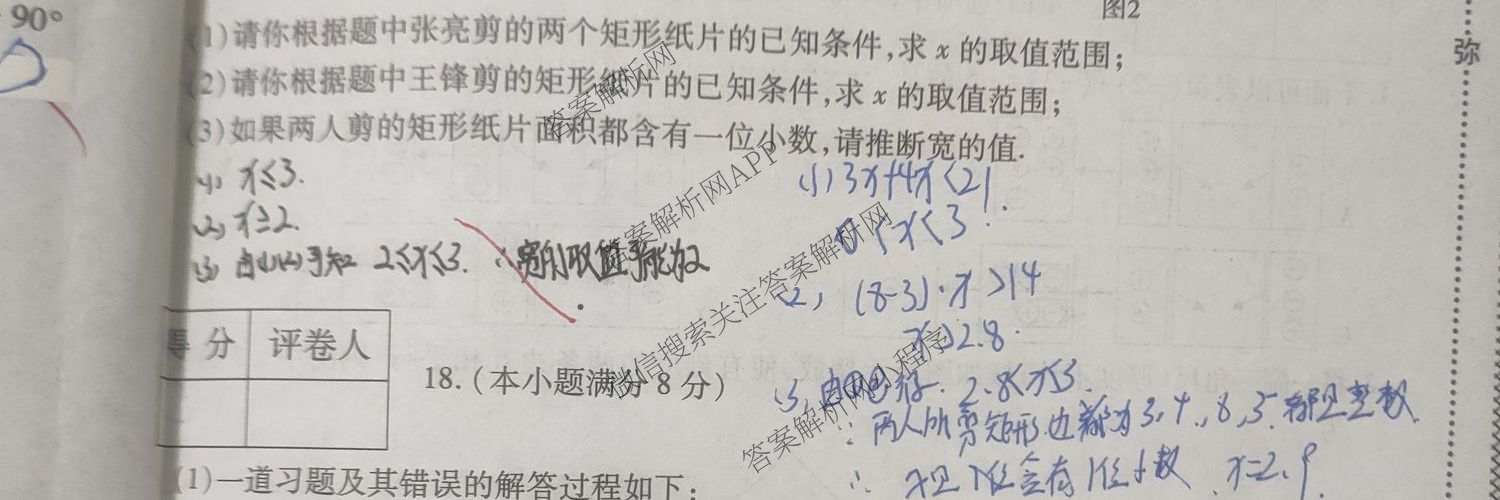 90°
图2
(1)请你根据题中张亮剪的两个矩形纸片的已知条件,求 x 的取值范围;
(2)请你根据题中王锋剪的矩形纸片的已知条件,求 x 的取值范围;
(3)如果两人剪的矩形纸片面积都含有一位小数,请推断宽的值.
(1) x≤3.
(2) x≥2.
(3) 由(1)(2)可知 2≤x≤3. ∴宽的取值可能为2
(1) 3x+4x<21
x<3.
(2) (8-3)·x>14
x>2.8.
(3) 2.8<x≤3.
∵两人所剪矩形边都为3,4,8,5.都是整数
∴ x=2.9
得 分 评卷人
18.(本小题满分 8 分)
(1)一道习题及其错误的解答过程如下:
弥
答案解析网
答案解析网APP
微信搜索关注答案解析网
答案解析网小程序